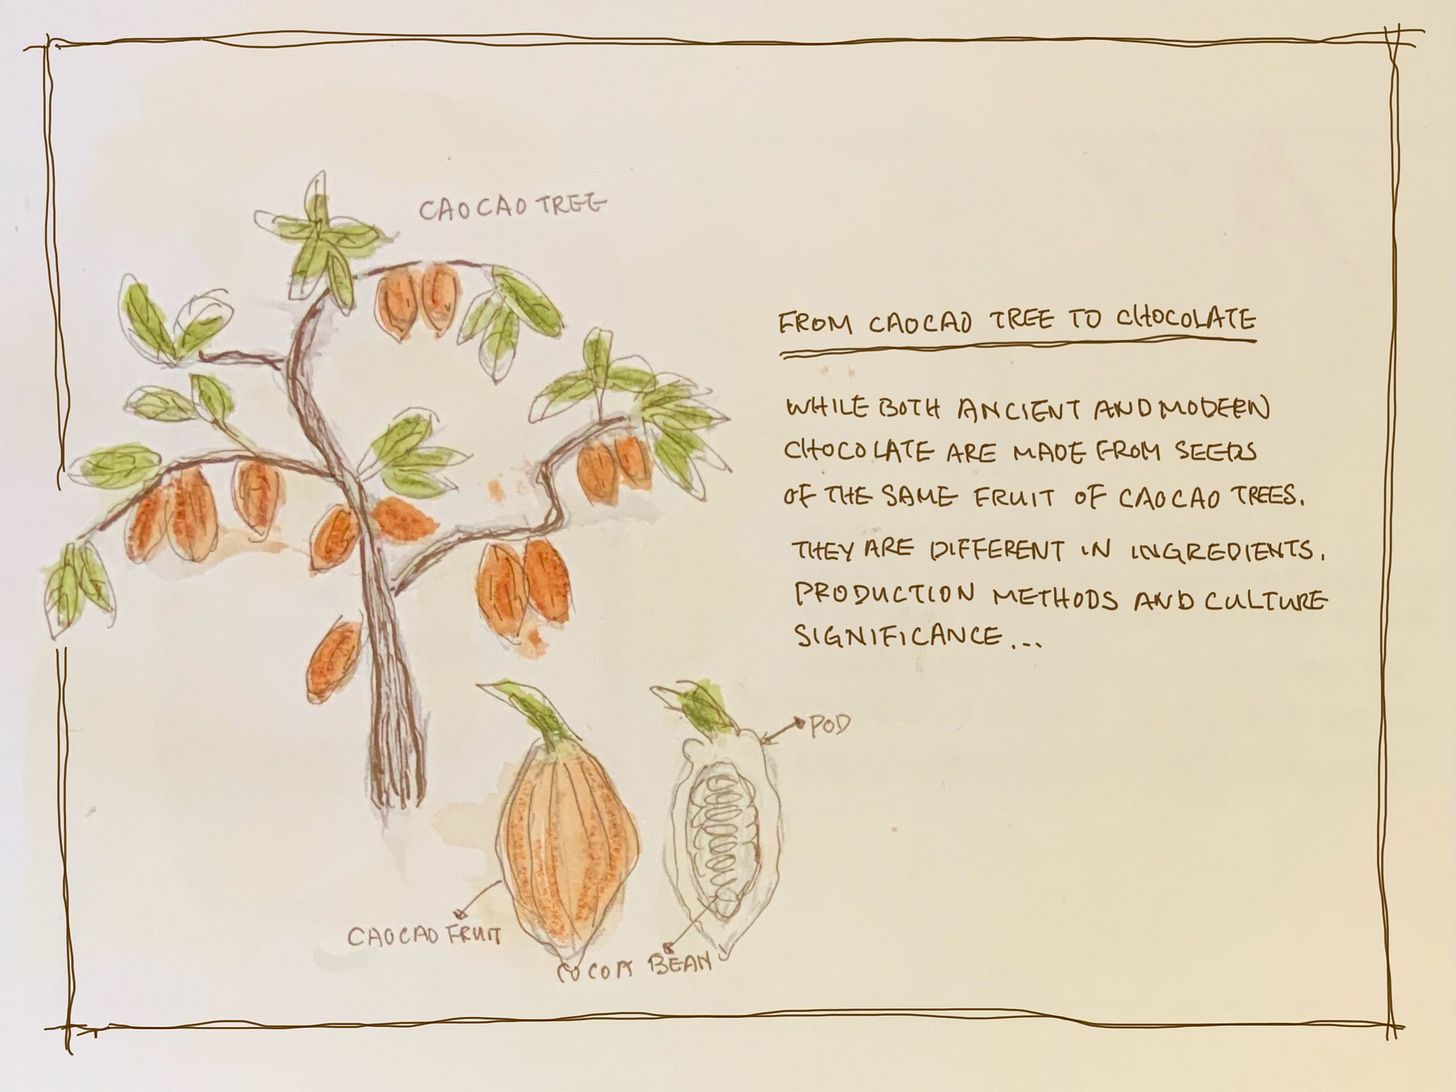 CAOCAO TREE
FROM CAOCAO TREE TO CHOCOLATE
WHILE BOTH ANCIENT AND MODERN
CHOCOLATE ARE MADE FROM SEEDS
OF THE SAME FRUIT OF CAOCAO TREES.
THEY ARE DIFFERENT IN INGREDIENTS.
PRODUCTION METHODS AND CULTURE
SIGNIFICANCE...
POD
CAOCAO FRUIT
COCOA BEAN